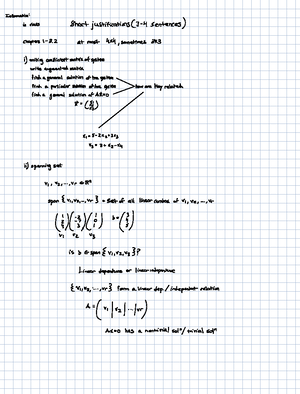 Information
6 ques Short justifications (2-4 sentences)
chapter 1-2.2 at most 4x4, sometimes 2x3
i) making coefficient matrix of system
write augmented matrix
find a general solution of the system
find a particular solution of the system how are they related
find a general solution of Ax=0
ii) spanning set
v₁, v₂, ..., vr ∈ Rⁿ
span {v₁, v₂, ..., vr} = set of all linear combos of v₁, v₂, ..., vr
v₁ v₂ v₃
is b ∈ span {v₁, v₂, v₃}?
Linear dependence or linear independence
{v₁, v₂, ..., vr} form a linear dep./independent relation
A = (v₁ | v₂ | ... | vr)
Ax=0 has a nontrivial solⁿ/trivial solⁿ